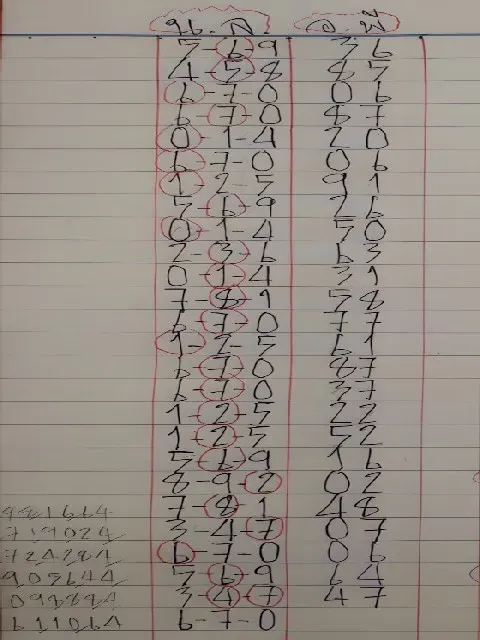 บน. ล. อ. พี
5-6-9 36
4-5-8 85
6-7-0 06
6-7-0 87
0-1-4 20
6-7-0 06
1-2-5 91
5-6-9 26
0-1-4 50
2-3-6 63
0-1-4 31
7-8-1 58
6-7-0 77
1-2-5 61
6-7-0 87
6-7-0 37
1-2-5 22
1-2-5 52
5-6-9 16
8-9-2 02
7-8-1 48
3-4-7 07
6-7-0 06
5-6-9 64
3-4-7 47
6-7-0